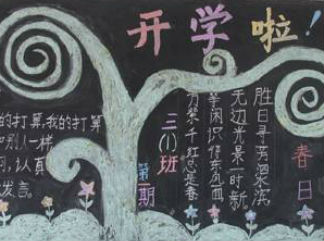 开学啦!
的打算,我的打算
和别人一样
习,认真
发言。
三(1)班
第一期
春日
胜日寻芳泗水滨,
无边光景一时新
等闲识得东风面
万紫千红总是春